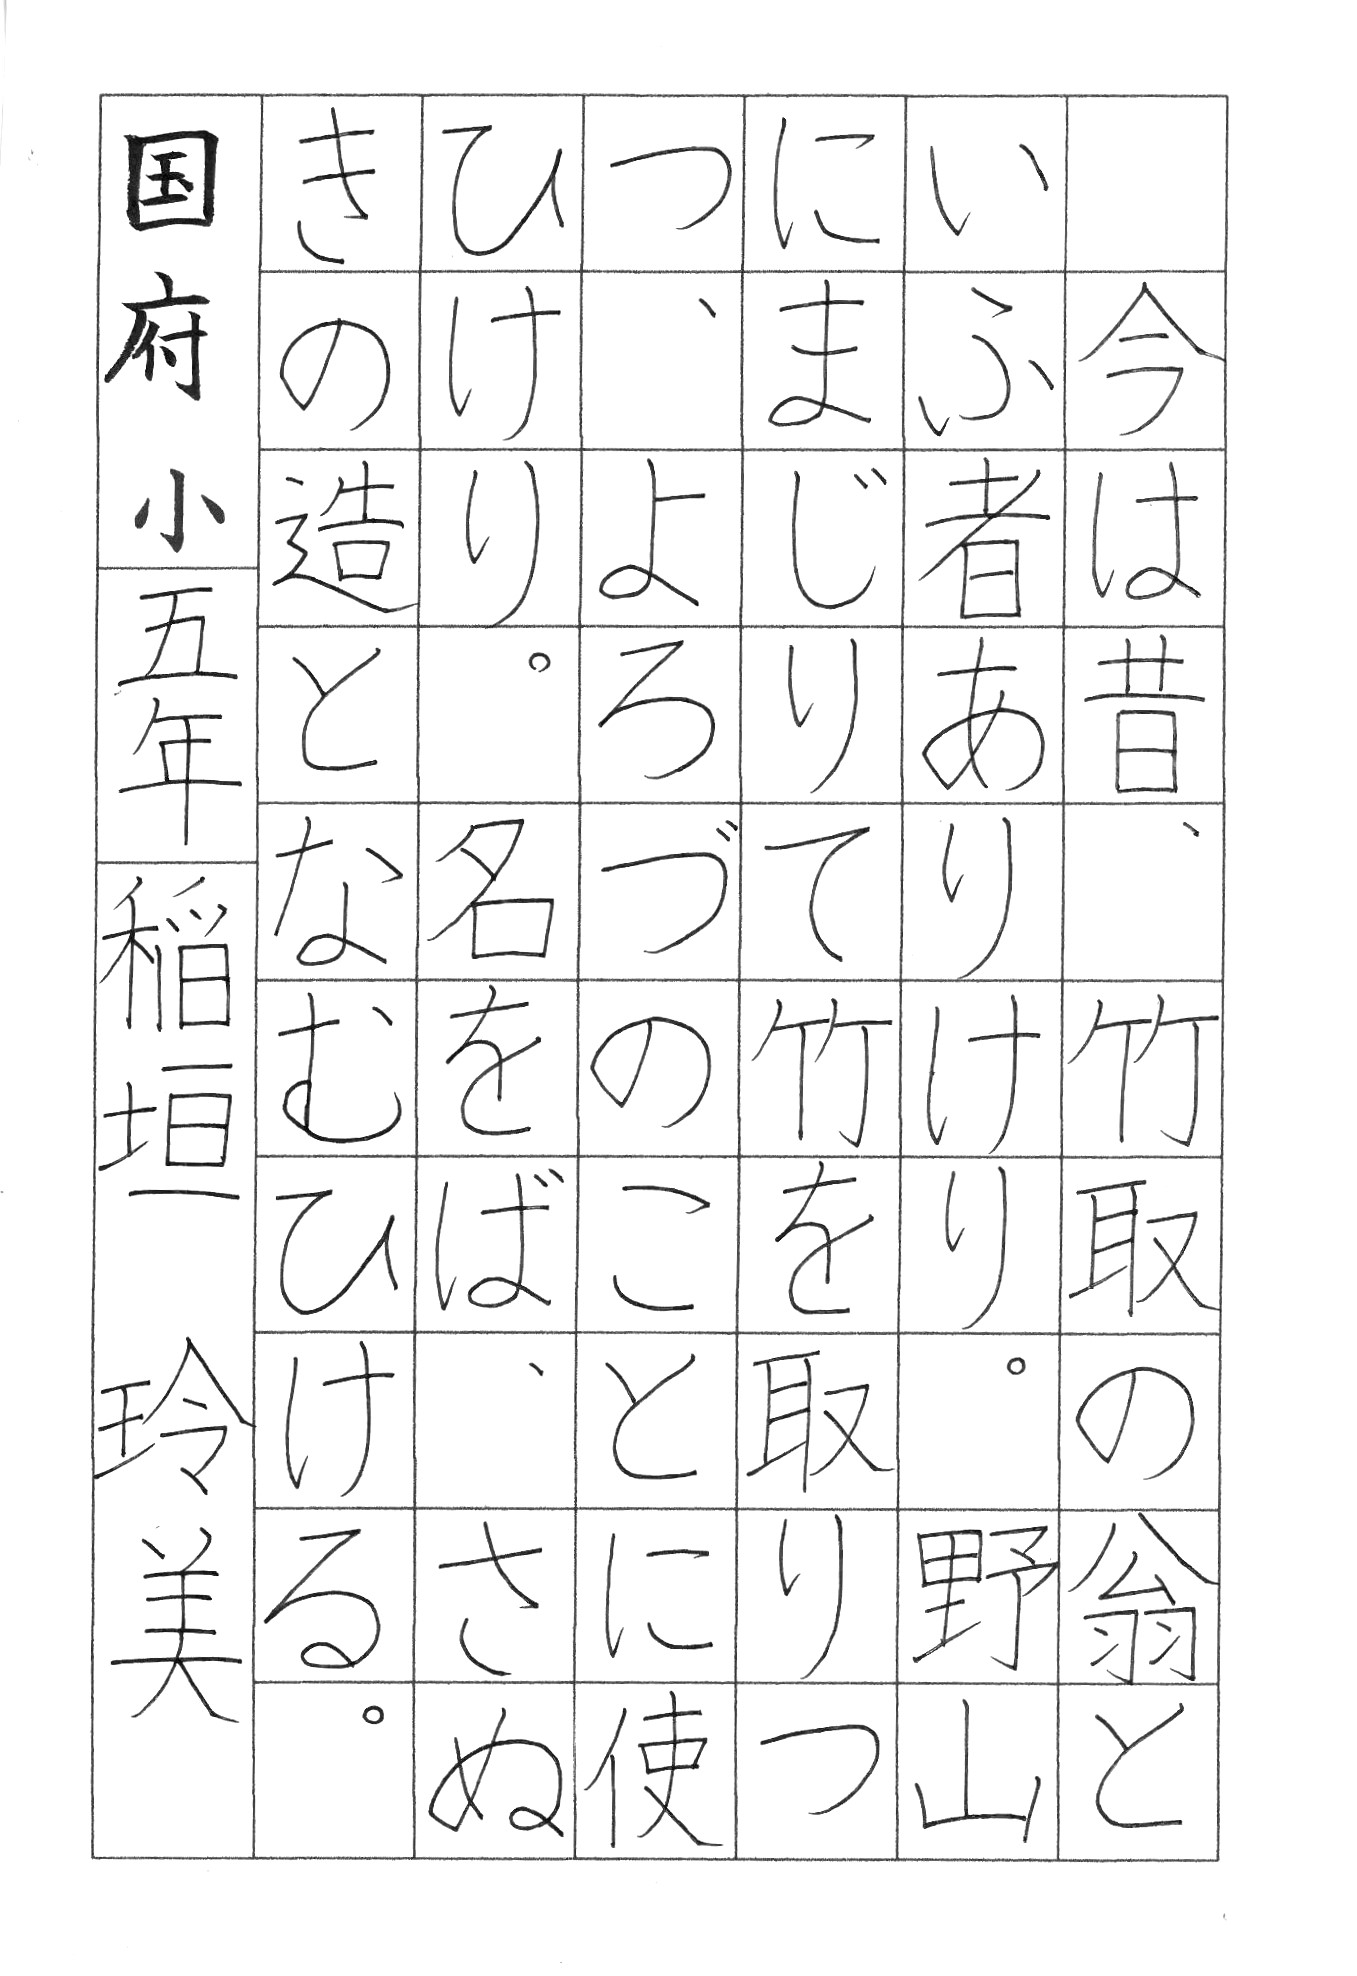 今は昔、竹取の翁と
いふ者ありけり。野山
にまじりて竹を取りつ
つ、よろづのことに使
ひけり。名をば、さぬ
きの造となむひける。
国府小五年稲垣 玲美